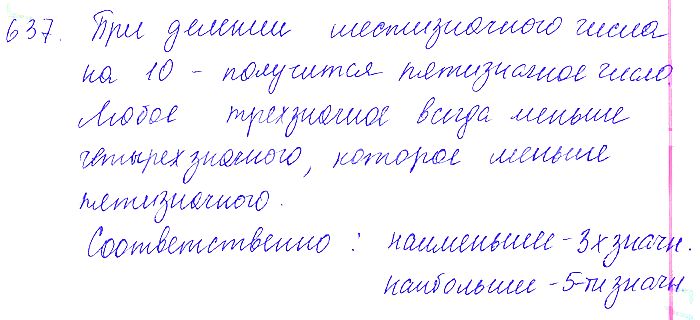 637. При делении шестизначного числа
на 10 - получится пятизначное число
Любое трехзначное всегда меньше
четырехзначного, которое меньше
пятизначного.
Соответственно : наименьшее - 3х значн.
наибольшее - 5-ти значн.